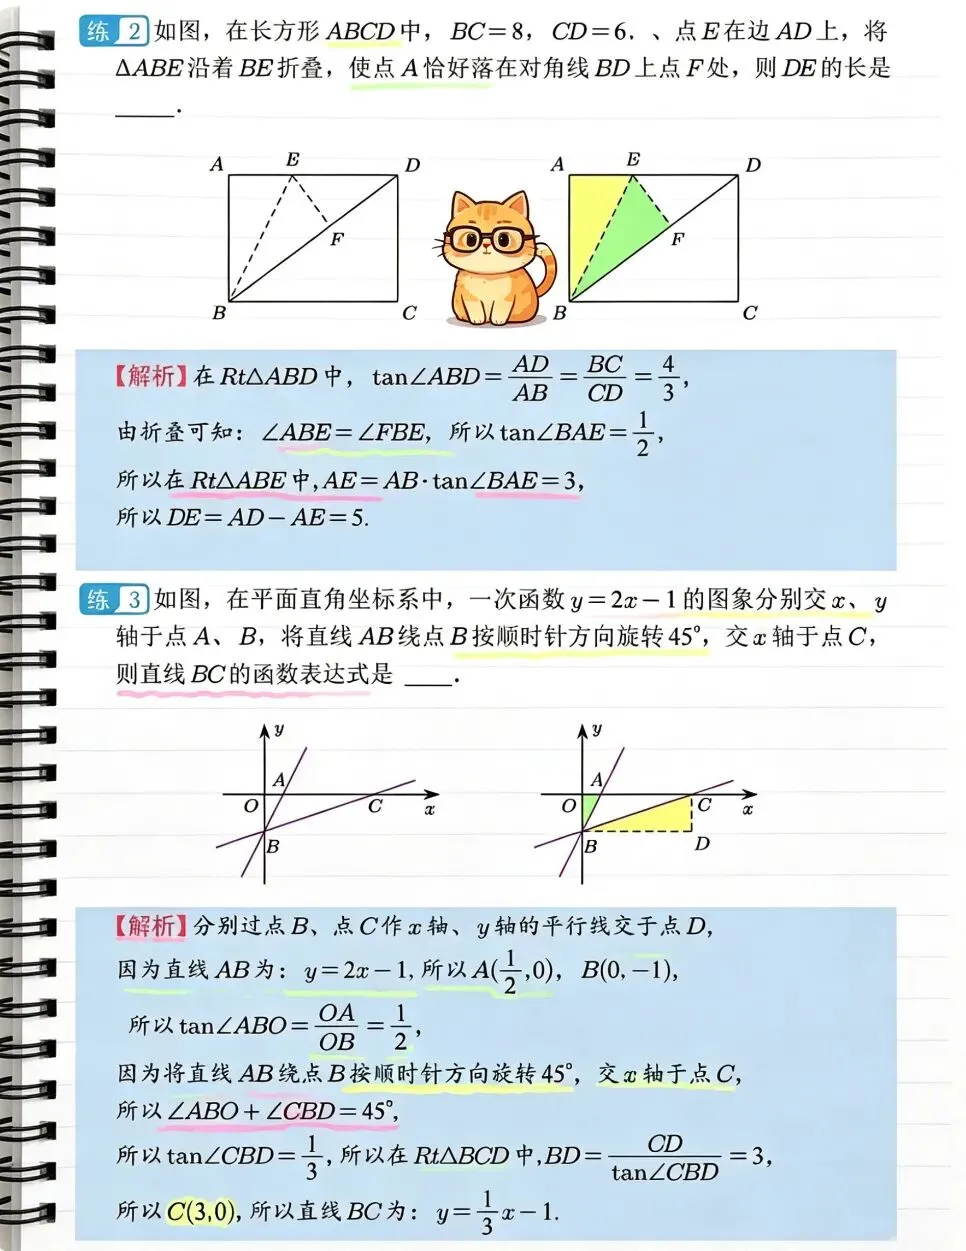 练 2 如图，在长方形 ABCD 中，BC=8，CD=6．、点 E 在边 AD 上，将
ΔABE 沿着 BE 折叠，使点 A 恰好落在对角线 BD 上点 F 处，则 DE 的长是
____．
A E D
F
B C
A E D
F
B C
【解析】在 Rt△ABD 中，tan∠ABD=AD/AB=BC/CD=4/3，
由折叠可知：∠ABE=∠FBE，所以 tan∠BAE=1/2，
所以在 Rt△ABE 中,AE=AB·tan∠BAE=3，
所以 DE=AD−AE=5.
练 3 如图，在平面直角坐标系中，一次函数 y=2x−1 的图象分别交 x、y
轴于点 A、B，将直线 AB 绕点 B 按顺时针方向旋转 45°，交 x 轴于点 C，
则直线 BC 的函数表达式是 ____．
y
A
O C x
B
y
A
O C x
B D
【解析】分别过点 B、点 C 作 x 轴、y 轴的平行线交于点 D，
因为直线 AB 为：y=2x−1, 所以 A(1/2,0)，B(0,−1)，
所以 tan∠ABO=OA/OB=1/2，
因为将直线 AB 绕点 B 按顺时针方向旋转 45°，交 x 轴于点 C，
所以 ∠ABO+∠CBD=45°，
所以 tan∠CBD=1/3，所以在 Rt△BCD 中,BD=CD/tan∠CBD=3，
所以 C(3,0), 所以直线 BC 为：y=1/3x−1.